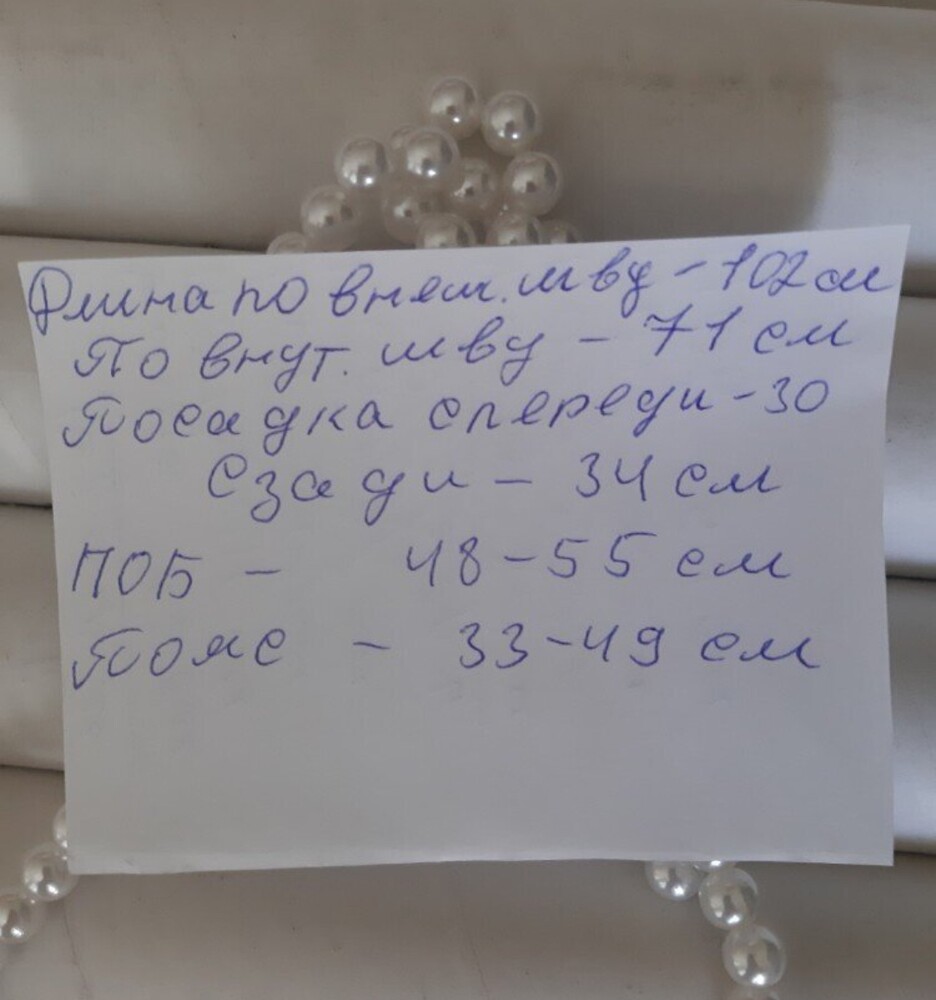 Длина по внеш. шву - 102 см
По внут. шву - 71 см
Посадка спереди - 30
Сзади - 34 см
ПОБ - 48-55 см
Пояс - 33-49 см